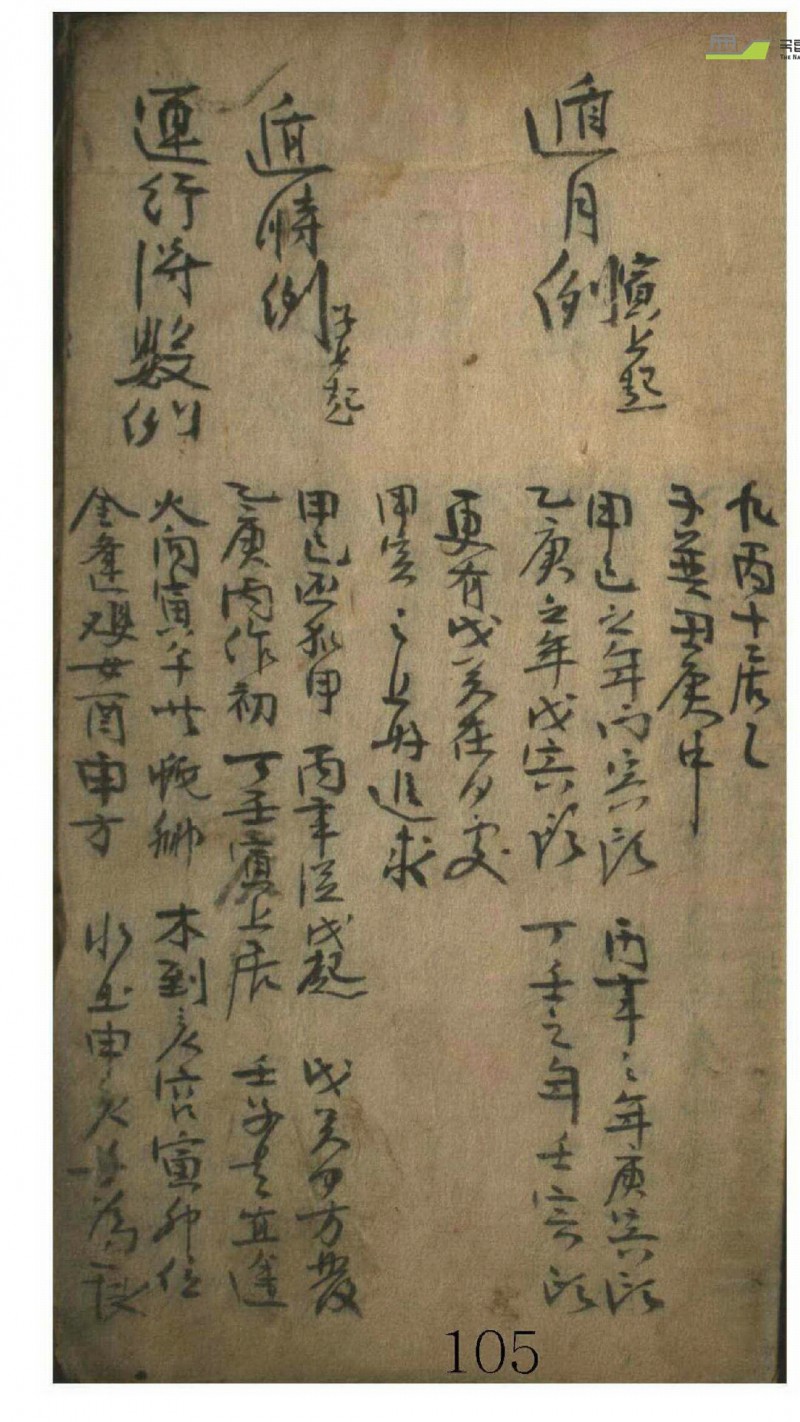 九丙十居乙
子癸丑庚中
遁月例 寅上起
甲己之年丙寅頭 丙辛之年庚寅頭
乙庚之年戊寅頭 丁壬之年壬寅頭
更有戊癸在何處
甲寅之上好追求
遁時例 子上起
甲己还加甲 丙辛從戊起 戊癸何方發
乙庚丙作初 丁壬庚上居 壬子是真途
運行得數例
火向寅午 木到亥宮寅卯位
金逢 酉申方 水土申亥
105